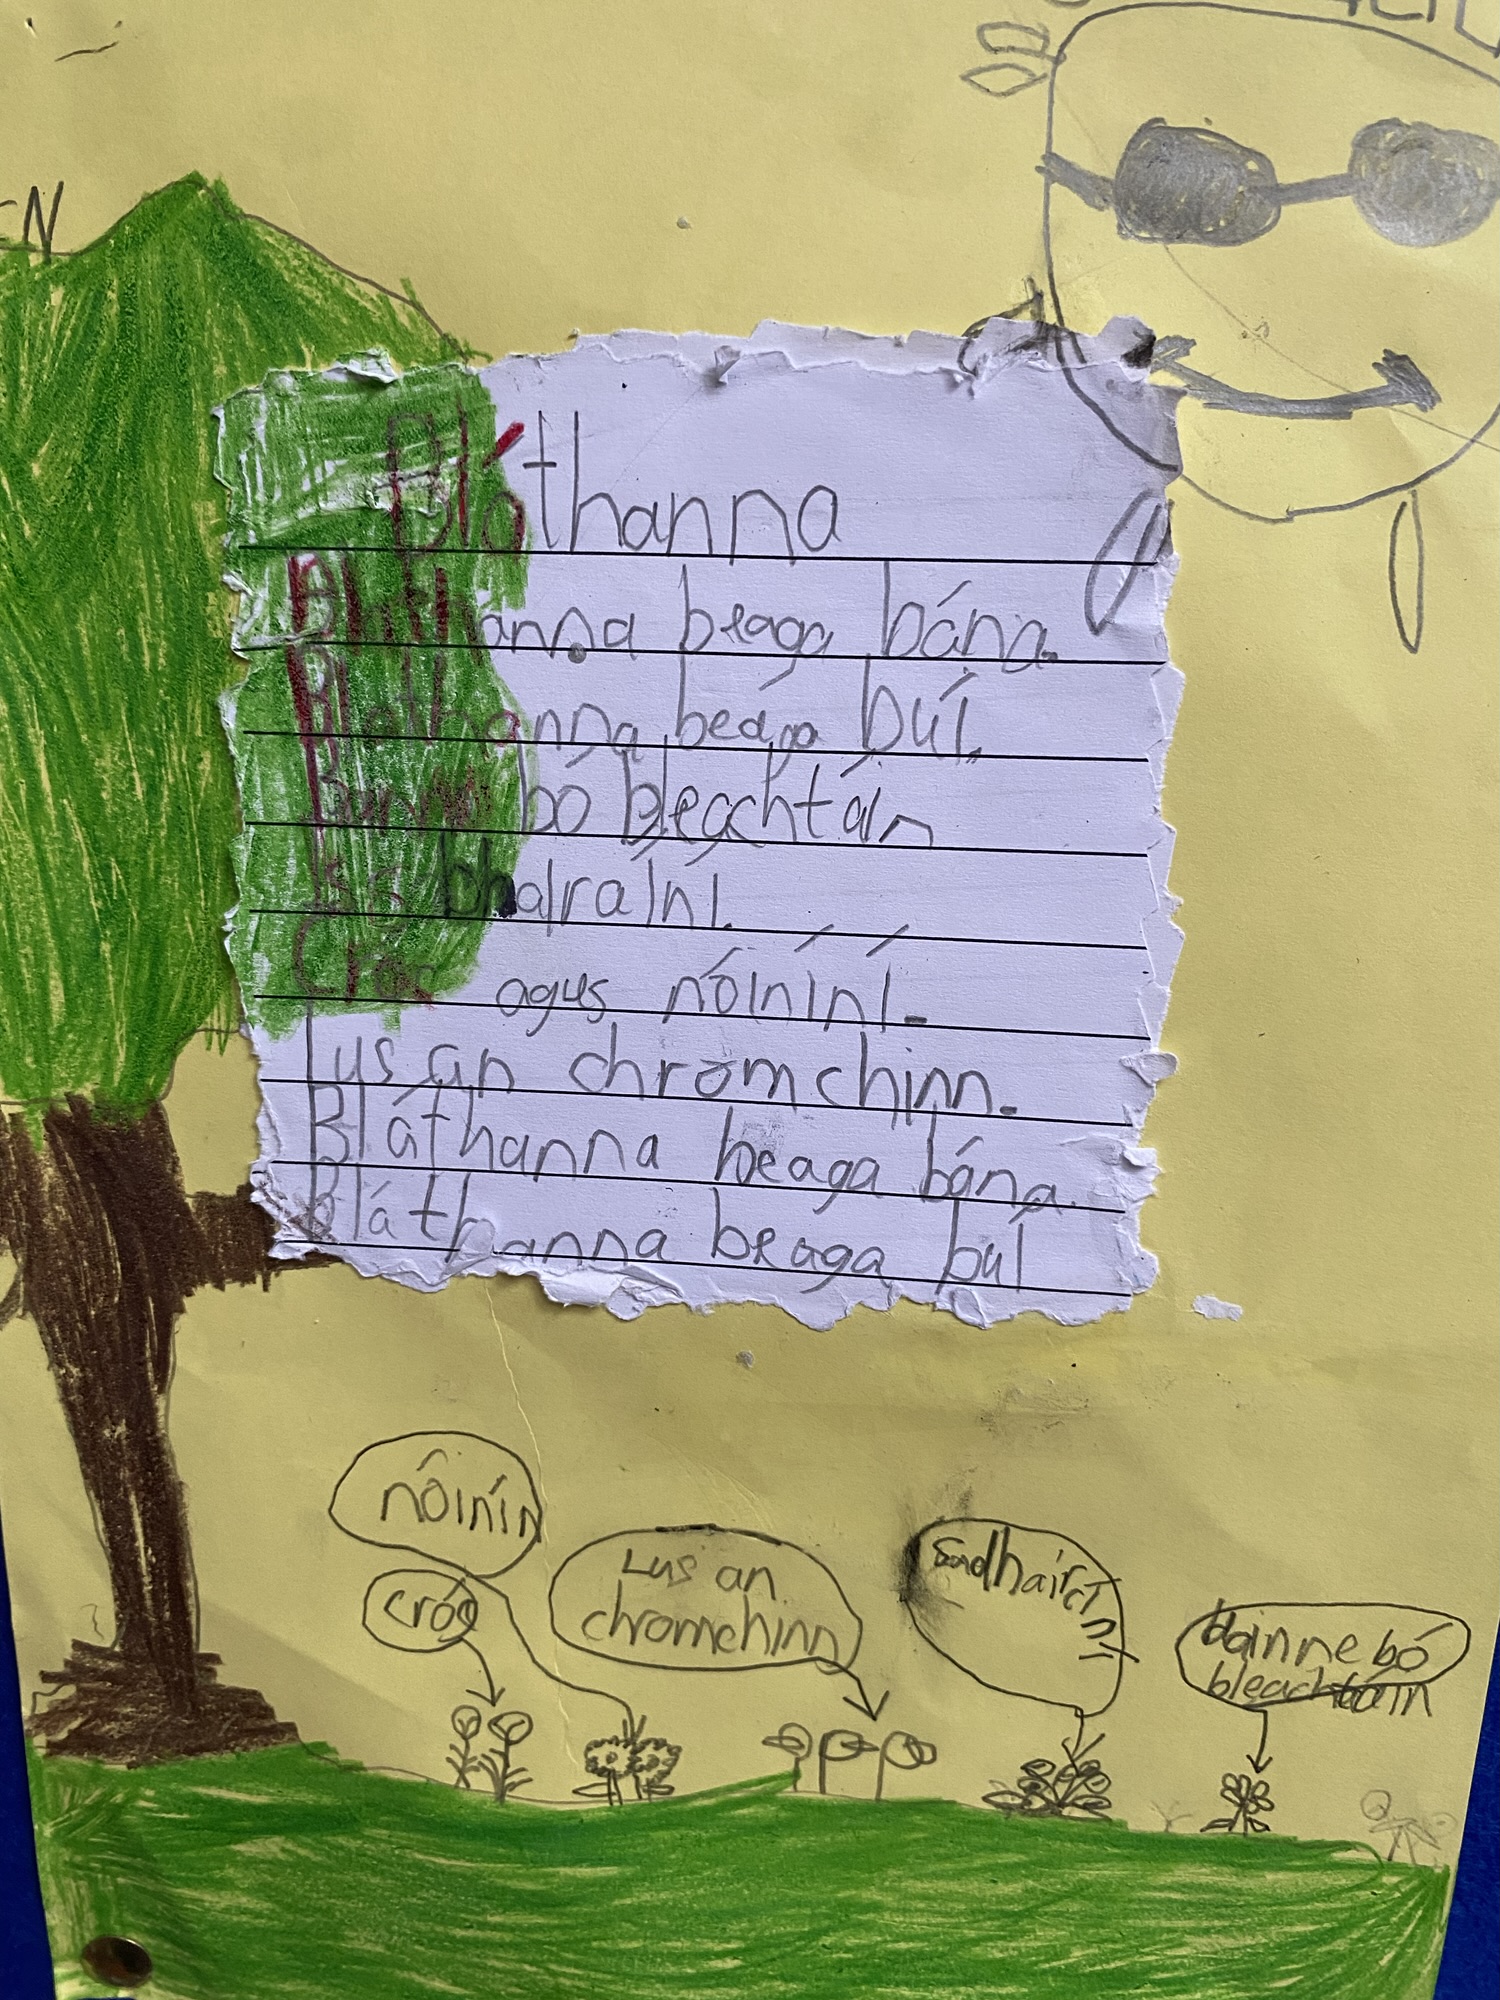 Bláthanna
Bláthanna beaga bána.
Blathanna beaga buí.
Bainne bó bleachtáin
Is bhairíní.
Cróc agus nóiníní.
Lus an chromchinn.
Bláthanna beaga bána.
Bláthanna beaga buí
nóinín
cróc
Lus an
chromchinn
Sadhaircín
bainne bó
bleachtáin